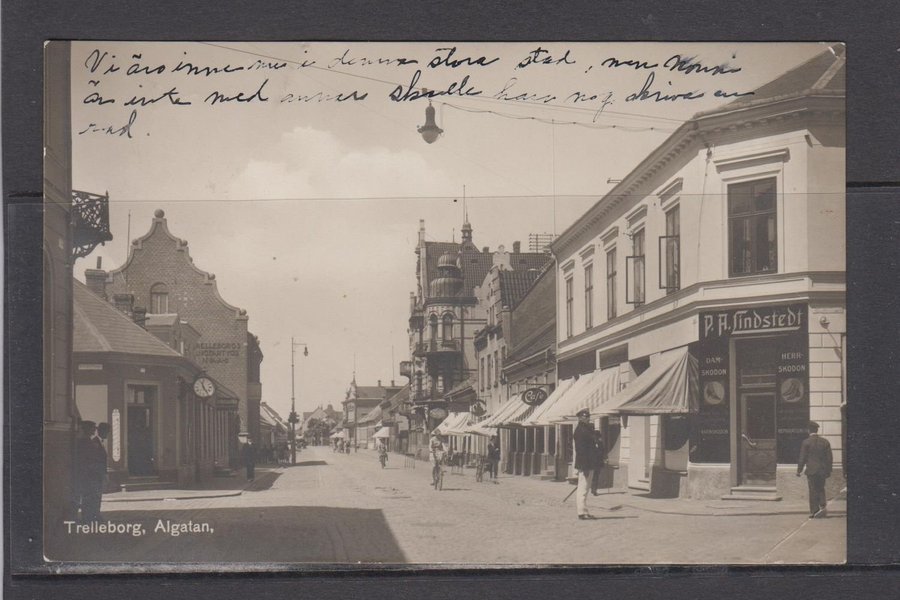 Vi äro inne nu i denna stora stad, men Konni
är inte med annars skulle han nog skriva en
rad.
P. A. Lindstedt
DAM-
SKODON
HERR-
SKODON
BARNSKODON
REPARATION
Café
TRELLEBORGS
Trelleborg, Algatan,